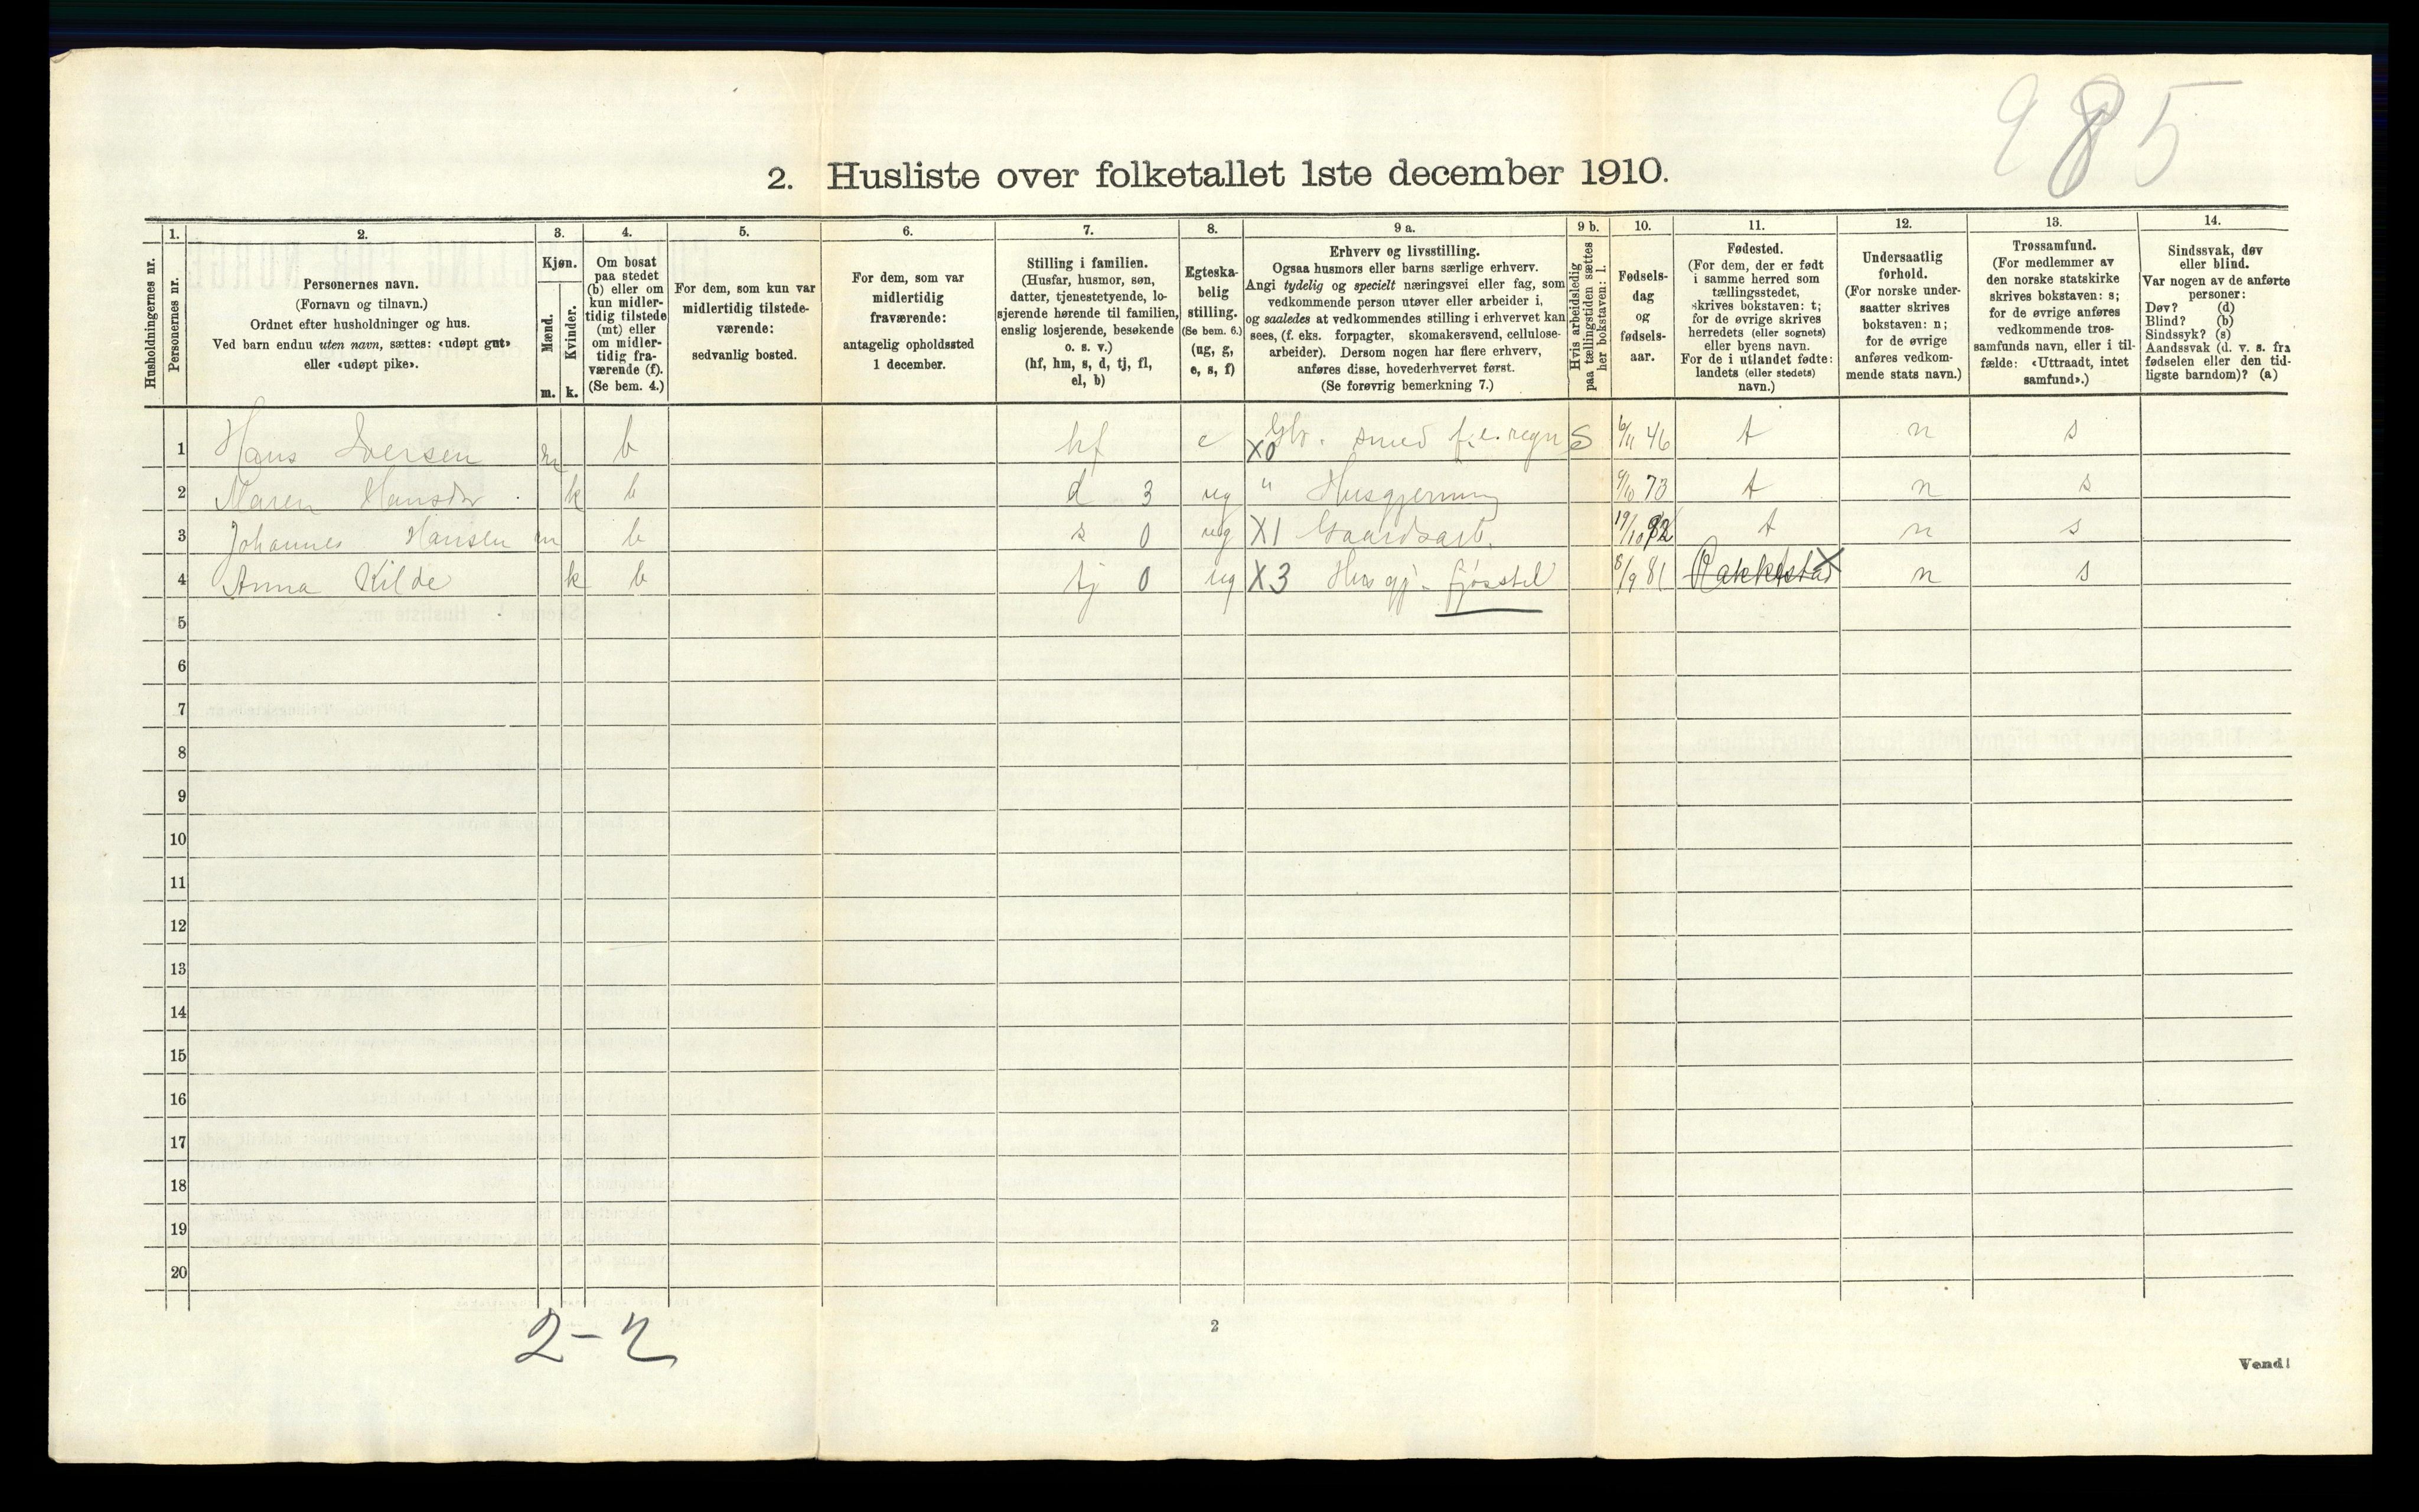 985
2. Husliste over folketallet 1ste december 1910.
1. 2. 3. 4. 5. 6. 7. 8. 9 a. 9 b. 10. 11. 12. 13. 14.
Husholdningernes nr.
Personernes nr.
Personernes navn.
(Fornavn og tilnavn.)
Ordnet efter husholdninger og hus.
Ved barn endnu uten navn, sættes: «udøpt gut»
eller «udøpt pike».
Kjøn.
Mænd.
Kvinder.
m. k.
Om bosat
paa stedet
(b) eller om
kun midler-
tidig tilstede
(mt) eller
om midler-
tidig fra-
værende (f).
(Se bem. 4.)
For dem, som kun var
midlertidig tilstede-
værende:
sedvanlig bosted.
For dem, som var
midlertidig
fraværende:
antagelig opholdssted
1 december.
Stilling i familien.
(Husfar, husmor, søn,
datter, tjenestetyende, lo-
sjerende hørende til familien,
enslig losjerende, besøkende
o. s. v.)
(hf, hm, s, d, tj, fl,
el, b)
Egteska-
belig
stilling.
(Se bem. 6.)
(ug, g,
e, s, f)
Erhverv og livsstilling.
Ogsaa husmors eller barns særlige erhverv.
Angi tydelig og specielt næringsvei eller fag, som
vedkommende person utøver eller arbeider i,
og saaledes at vedkommendes stilling i erhvervet kan
sees, (f. eks. forpagter, skomakersvend, cellulose-
arbeider). Dersom nogen har flere erhverv,
anføres disse, hovederhvervet først.
(Se forøvrig bemerkning 7.)
Hvis arbeidsledig
paa tællingstiden sættes
her bokstaven: l.
Fødsels-
dag
og
fødsels-
aar.
Fødested.
(For dem, der er født
i samme herred som
tællingsstedet,
skrives bokstaven: t;
for de øvrige skrives
herredets (eller sognets)
eller byens navn.
For de i utlandet fødte:
landets (eller stedets)
navn.)
Undersaatlig
forhold.
(For norske under-
saatter skrives
bokstaven: n;
for de øvrige
anføres vedkom-
mende stats navn.)
Trossamfund.
(For medlemmer av
den norske statskirke
skrives bokstaven: s;
for de øvrige anføres
vedkommende tros-
samfunds navn, eller i til-
fælde: «Uttraadt, intet
samfund».)
Sindssvak, døv
eller blind.
Var nogen av de anførte
personer:
Døv? (d)
Blind? (b)
Sindssyk? (s)
Aandssvak (d. v. s. fra
fødselen eller den tid-
ligste barndom)? (a)
1 Hans Iversen m b hf e X0 Gbr. smed f.e. regn S 6/11 46 t n s
2 Maren Hansdtr k b d 3 ug " Husgjerning 9/10 73 t n s
3 Johannes Hansen m b s 0 ug X1 Gaardsarb. 19/10 82 t n s
4 Anna Kilde k b tj 0 ug X3 Husgj. fjøsstel 8/9 81 Rakkestad X n s
5
6
7
8
9
10
11
12
13
14
15
16
17
18
19
20
2-2
2
Vend!